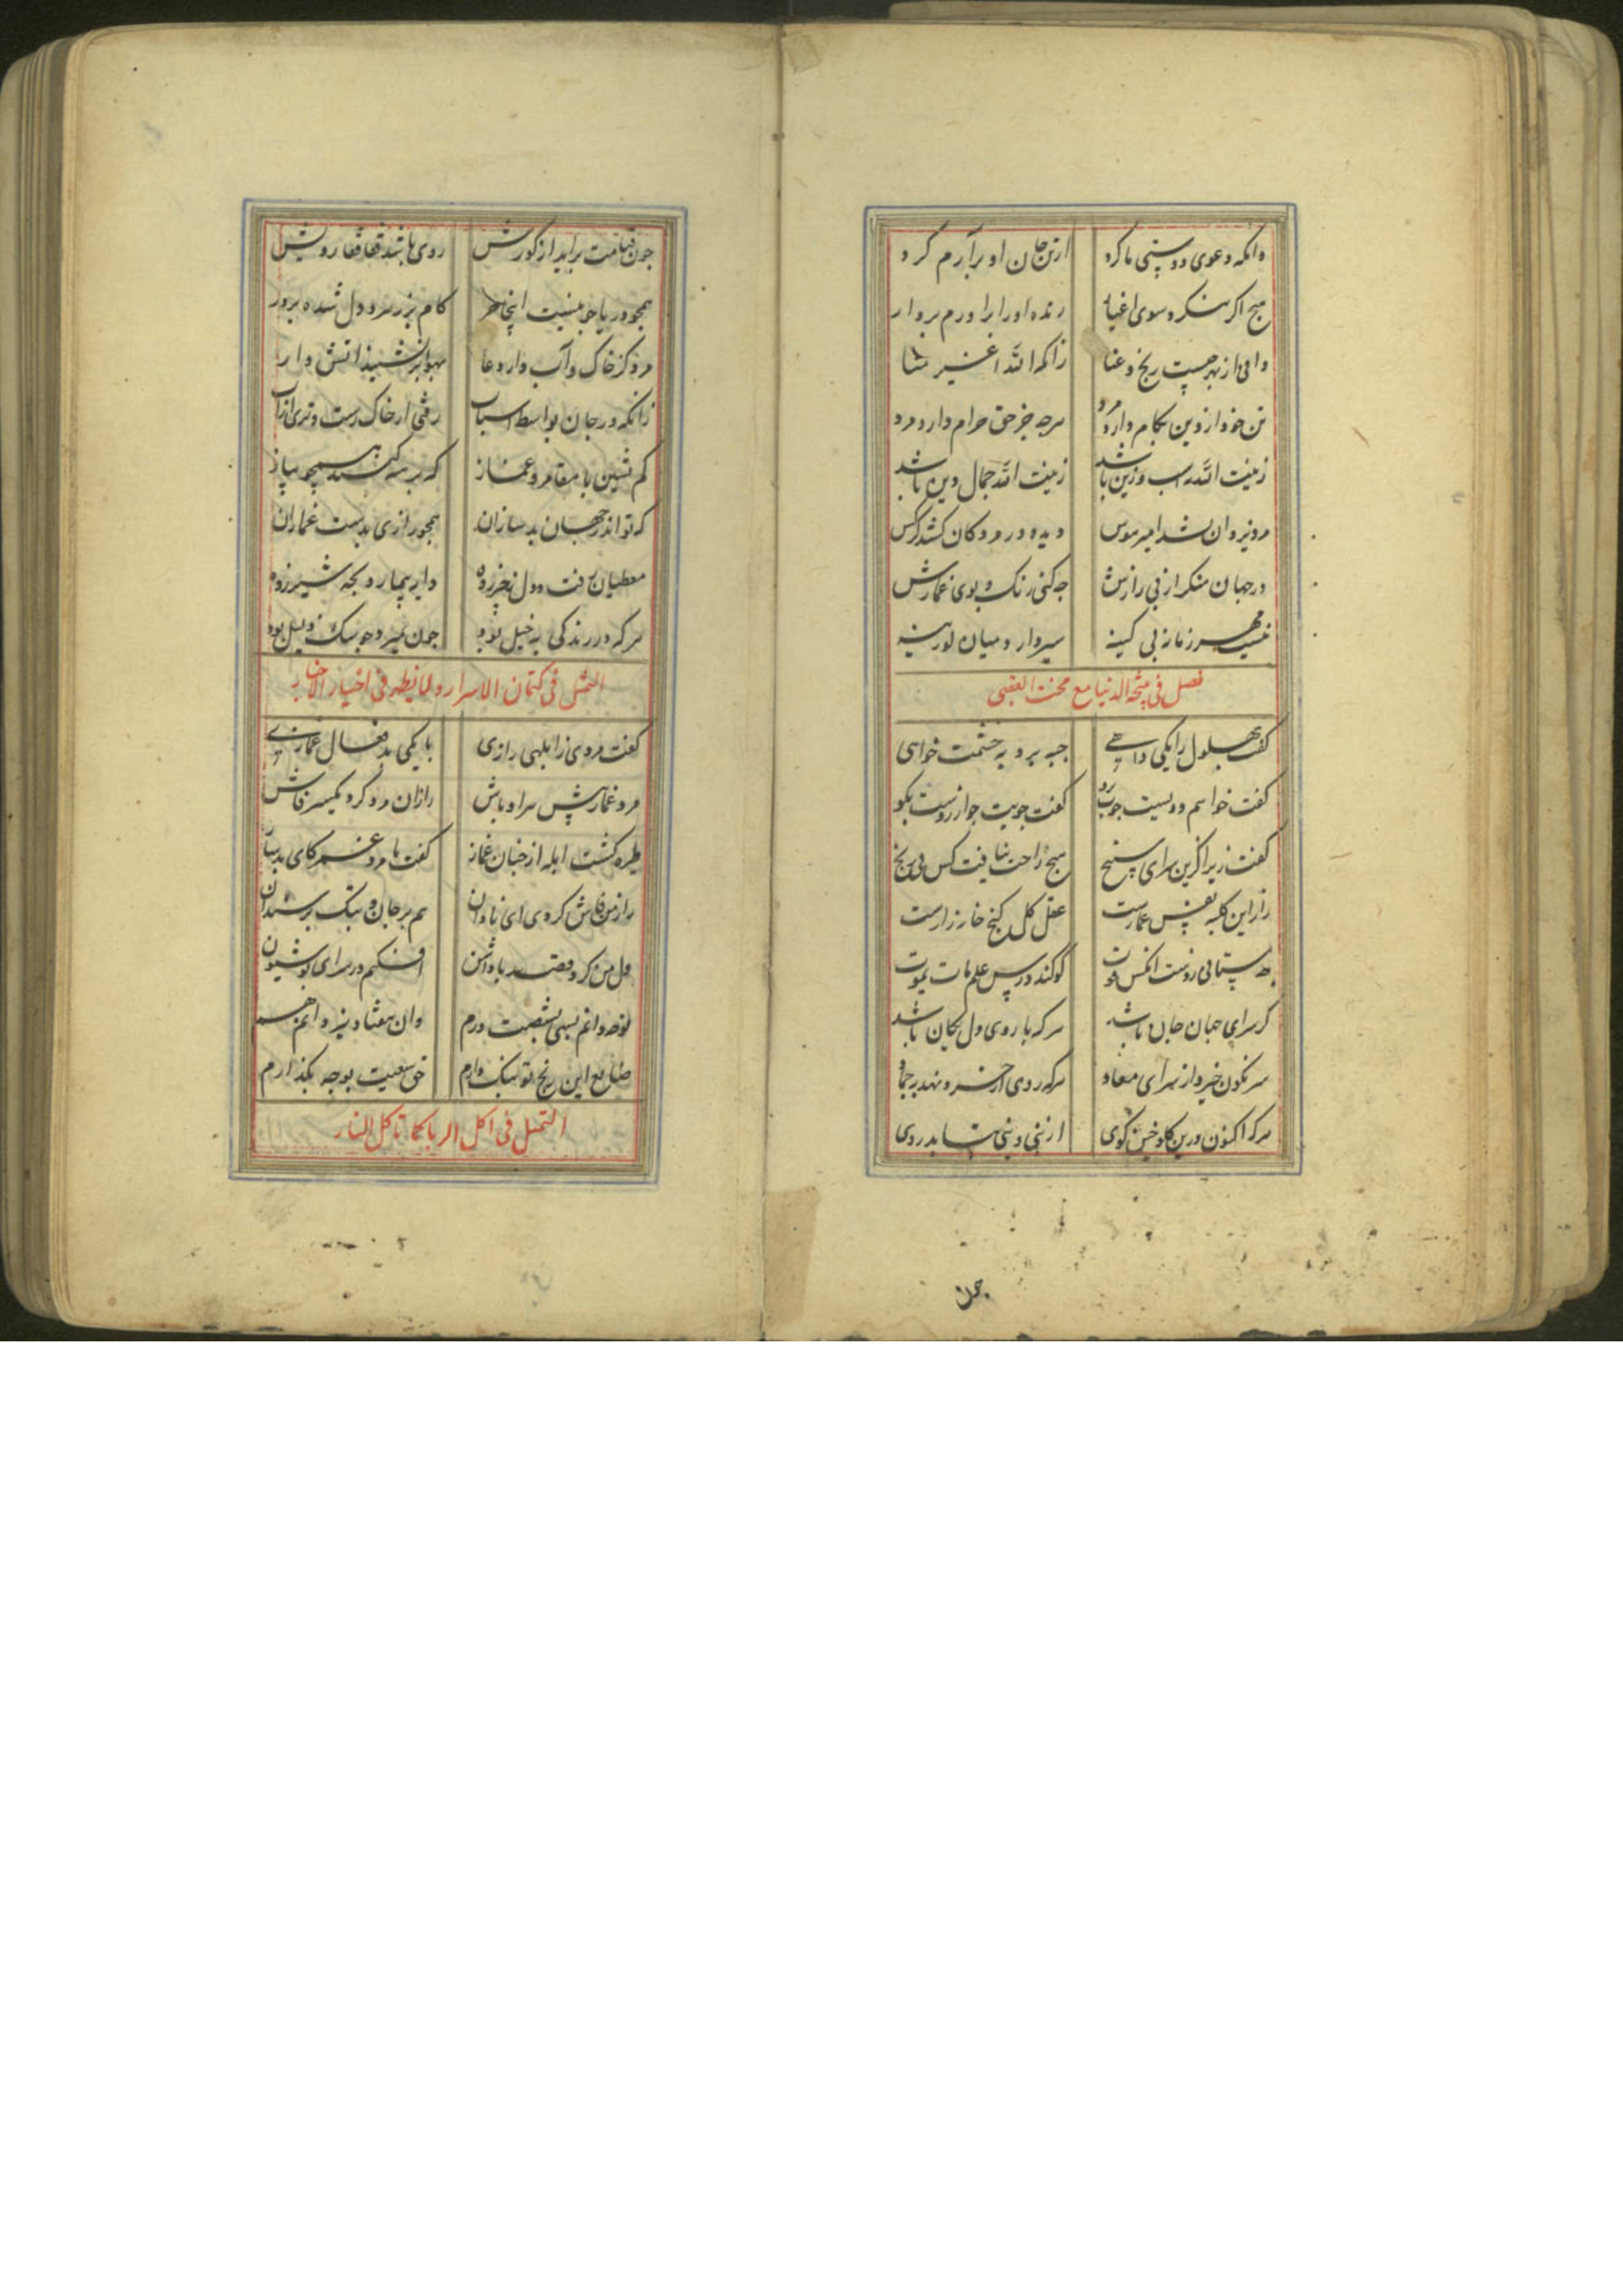 وانکه دعوی دوستی ما کرد ازتن جان او برآرم کرد
هیچ اکر بنکرد سوی اغیار زنده او را برآورم بر دار
دانی از بهر چیست رنج و عنا زانکه الله اغیر منا
تن خود از دین بکام دارد مرد هرچه جز حق حرام دارد مرد
زینت الله اسب و زین باشد زینت الله جمال دین باشد
مرد نیرد ان نشد امیر هوس دیده در مردکان کشد کرکس
در جهان منکر از پی رازش چه کنی رنک و بوی غمازش
نیست مهر زمانه بی کینه سیر دارد میان لوزینه
فصل فی منحة الدنیا مع محنت العقبی
کفت بهلول را یکی داهی جبه بردیه خشمت خواهی
کفت خواهم دویست چوب برو کفت چوبت چو آرزوست بکو
کفت زیرا کزین سرای سپنج هیچ راحت نیافت کس بی رنج
راز این کلبه نفس غمازست عقل کل کنج خانه رازست
کو کند درس علم مات یموت
کز سرای جهان جان باشد هرکه با روی دل بکان باشد
سرنکون خیزد از سرای معاد هرکه روی از خرد نهد به جماد
هرکه اکنون درین کلوخین کوی ارنی وبنی نتابد روی
چون
چون قیامت برآید از کورش روی باشد قفا قفا رویش
همجو دریا جو نیست اینجا حر کام پر زر و دل شده پر در
مرد کز خاک و آب دارد عار بهوا برنشیند آتش وار
زانکه در جان بواسطه اسباب رفتی از خاک رست و تری از آب
کم نشین با مقامر و غماز که برهنه کنند همچو پیاز
که تو اندر جهان بدسازان همجو رازی بدست غمازان
معطیان رفت و دل بخیزده دایه بیمار و بجه شیر زده
هرکه در زندکی بخیل بود چون بمیرد چو سک ذلیل بود
التمثل فی کتمان الاسرار و المانیطه فی اختیار الاحبابه
کفت مردی ز ابلهی رازی با یکی بدفعال غمازی
مرد غماز پیش هر اوباش راز ان مرد کرد یکسر فاش
طیره کشت ابله از چنان غماز کفت با مرد غمر کای بدساز
راز من فاش کردی ای نادان هم بر جان و تنک بر سندان
دل من کرد قصد پاداشن افکنم در سرای تو شیون
نوحه دانم بسی بشصت درم وان هفتاد نیز دانم هم
ضایع این رنج تو نیک دارم حق سعیت بوجه بکذارم
التمثل فی اکل الربا کما تاکل النار